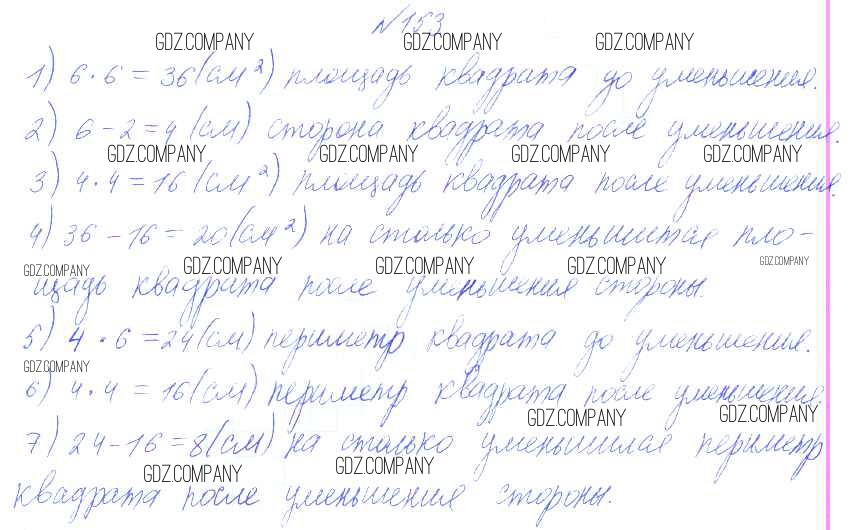 №153
GDZ.COMPANY GDZ.COMPANY GDZ.COMPANY
1) 6·6=36(см²) площадь квадрата до уменьшения.
2) 6-2=4(см) сторона квадрата после уменьшения.
GDZ.COMPANY GDZ.COMPANY GDZ.COMPANY GDZ.COMPANY
3) 4·4=16(см²) площадь квадрата после уменьшения.
4) 36-16=20(см²) на столько уменьшится пло-
GDZ.COMPANY GDZ.COMPANY GDZ.COMPANY GDZ.COMPANY GDZ.COMPANY
щадь квадрата после уменьшения стороны.
5) 4·6=24(см) периметр квадрата до уменьшения.
GDZ.COMPANY
6) 4·4=16(см) периметр квадрата после уменьшения.
GDZ.COMPANY GDZ.COMPANY
7) 24-16=8(см) на столько уменьшился периметр
GDZ.COMPANY GDZ.COMPANY
квадрата после уменьшения стороны.